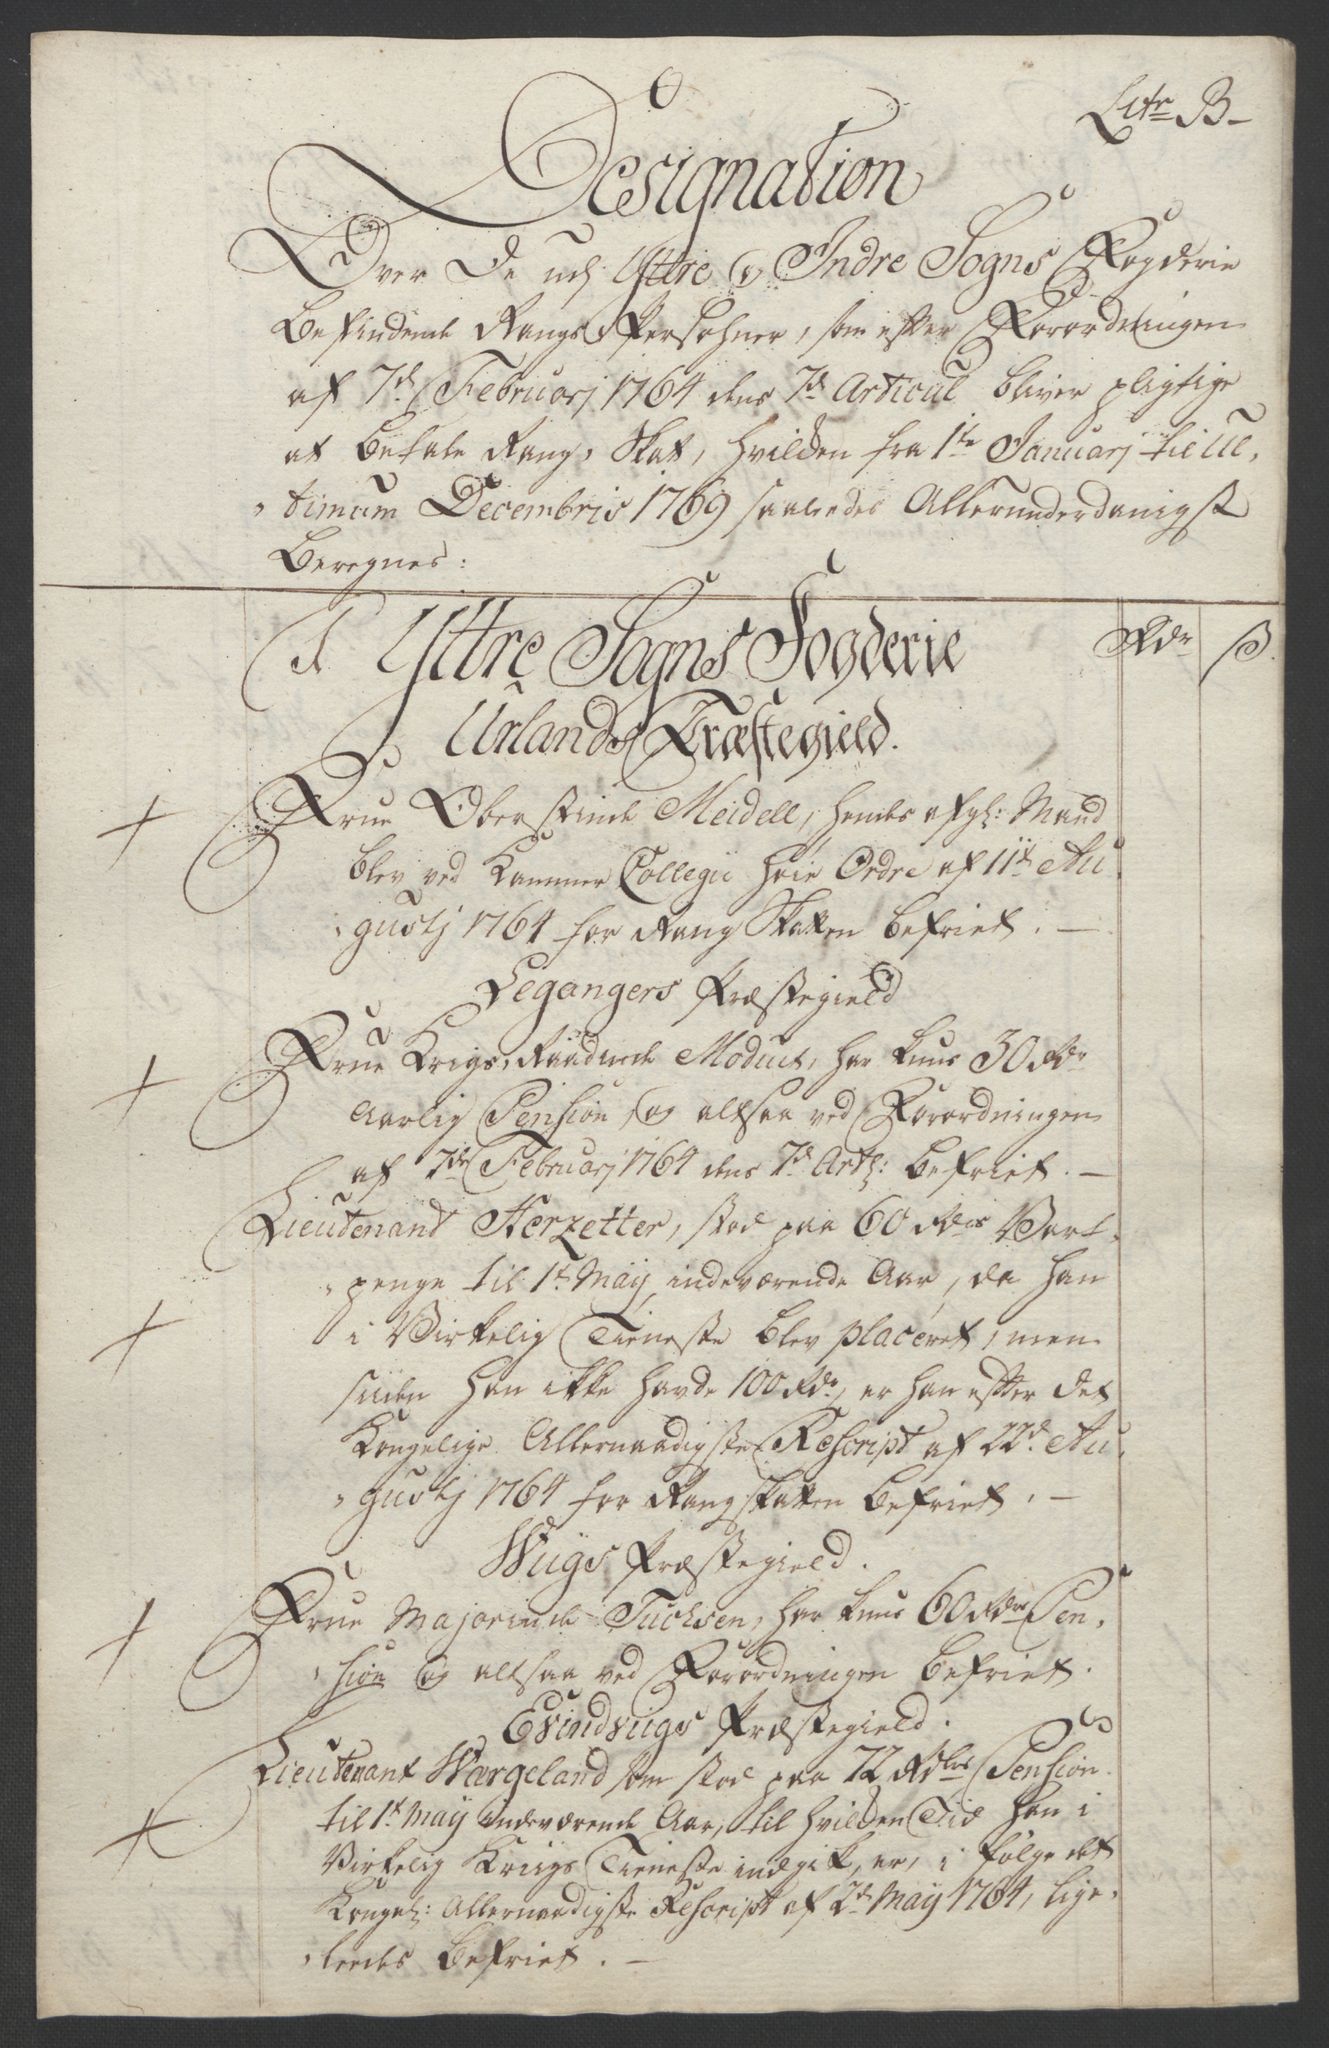 Litr B
Designation
Over De udj Yttre og Indre Sogns Fogderie
Befindende Rangs Persohner, som efter Forordningen
af 7de Februarj 1764 dens 7de Articul bliver pligtige
at betale Rang-Skat, hvilken fra 1te Januarj til Ul-
-timum Decembris 1769 saaledes Allerunderdanigst
Beregnes:
I Yttre Sogns Fogderie Rdr ß
Urlands Præstegield.
Frue Oberstinde Meidell, hendes afg: Mand
blev ved Kammer Collegii høie Ordre af 11te Au-
-gustj 1764 for Rang Skatten befriet. —
Legangers Præstegield
Frue Krigs-Raadinde Modius, har kuns 30 Rdr
Aarlig Pension, og altsaa ved Forordningen
af 7de Februarj 1764 dens 7de Art: befriet. —
Lieutenant Herzetter, stod paa 60 Rdrs Vart-
-penge til 1te Maij indeværende Aar, da han
i Virkelig Tieneste blev placeret, men
siden han ikke havde 100 Rdr, er han efter det
Kongelige Allernaadigste Rescript af 22de Au-
-gustj 1764 for Rangskatten befriet. —
Wiigs Præstegield.
Frue Majorinde Tuchsen, har kuns 60 Rdrs Pen-
-sion og altsaa ved Forordningen befriet.
Evindvigs Præstegield.
Lieutenant Wærgeland som stod paa 72 Rdlrs Pension
til 1te Maij indeværende Aar, til hvilken Tid han i
Virkelig Kriigs Tieneste indgik, er, i følge det
Kongel: Allernaadigste Rescript af 2de Maij 1764, lige-
-leedes befriet. —